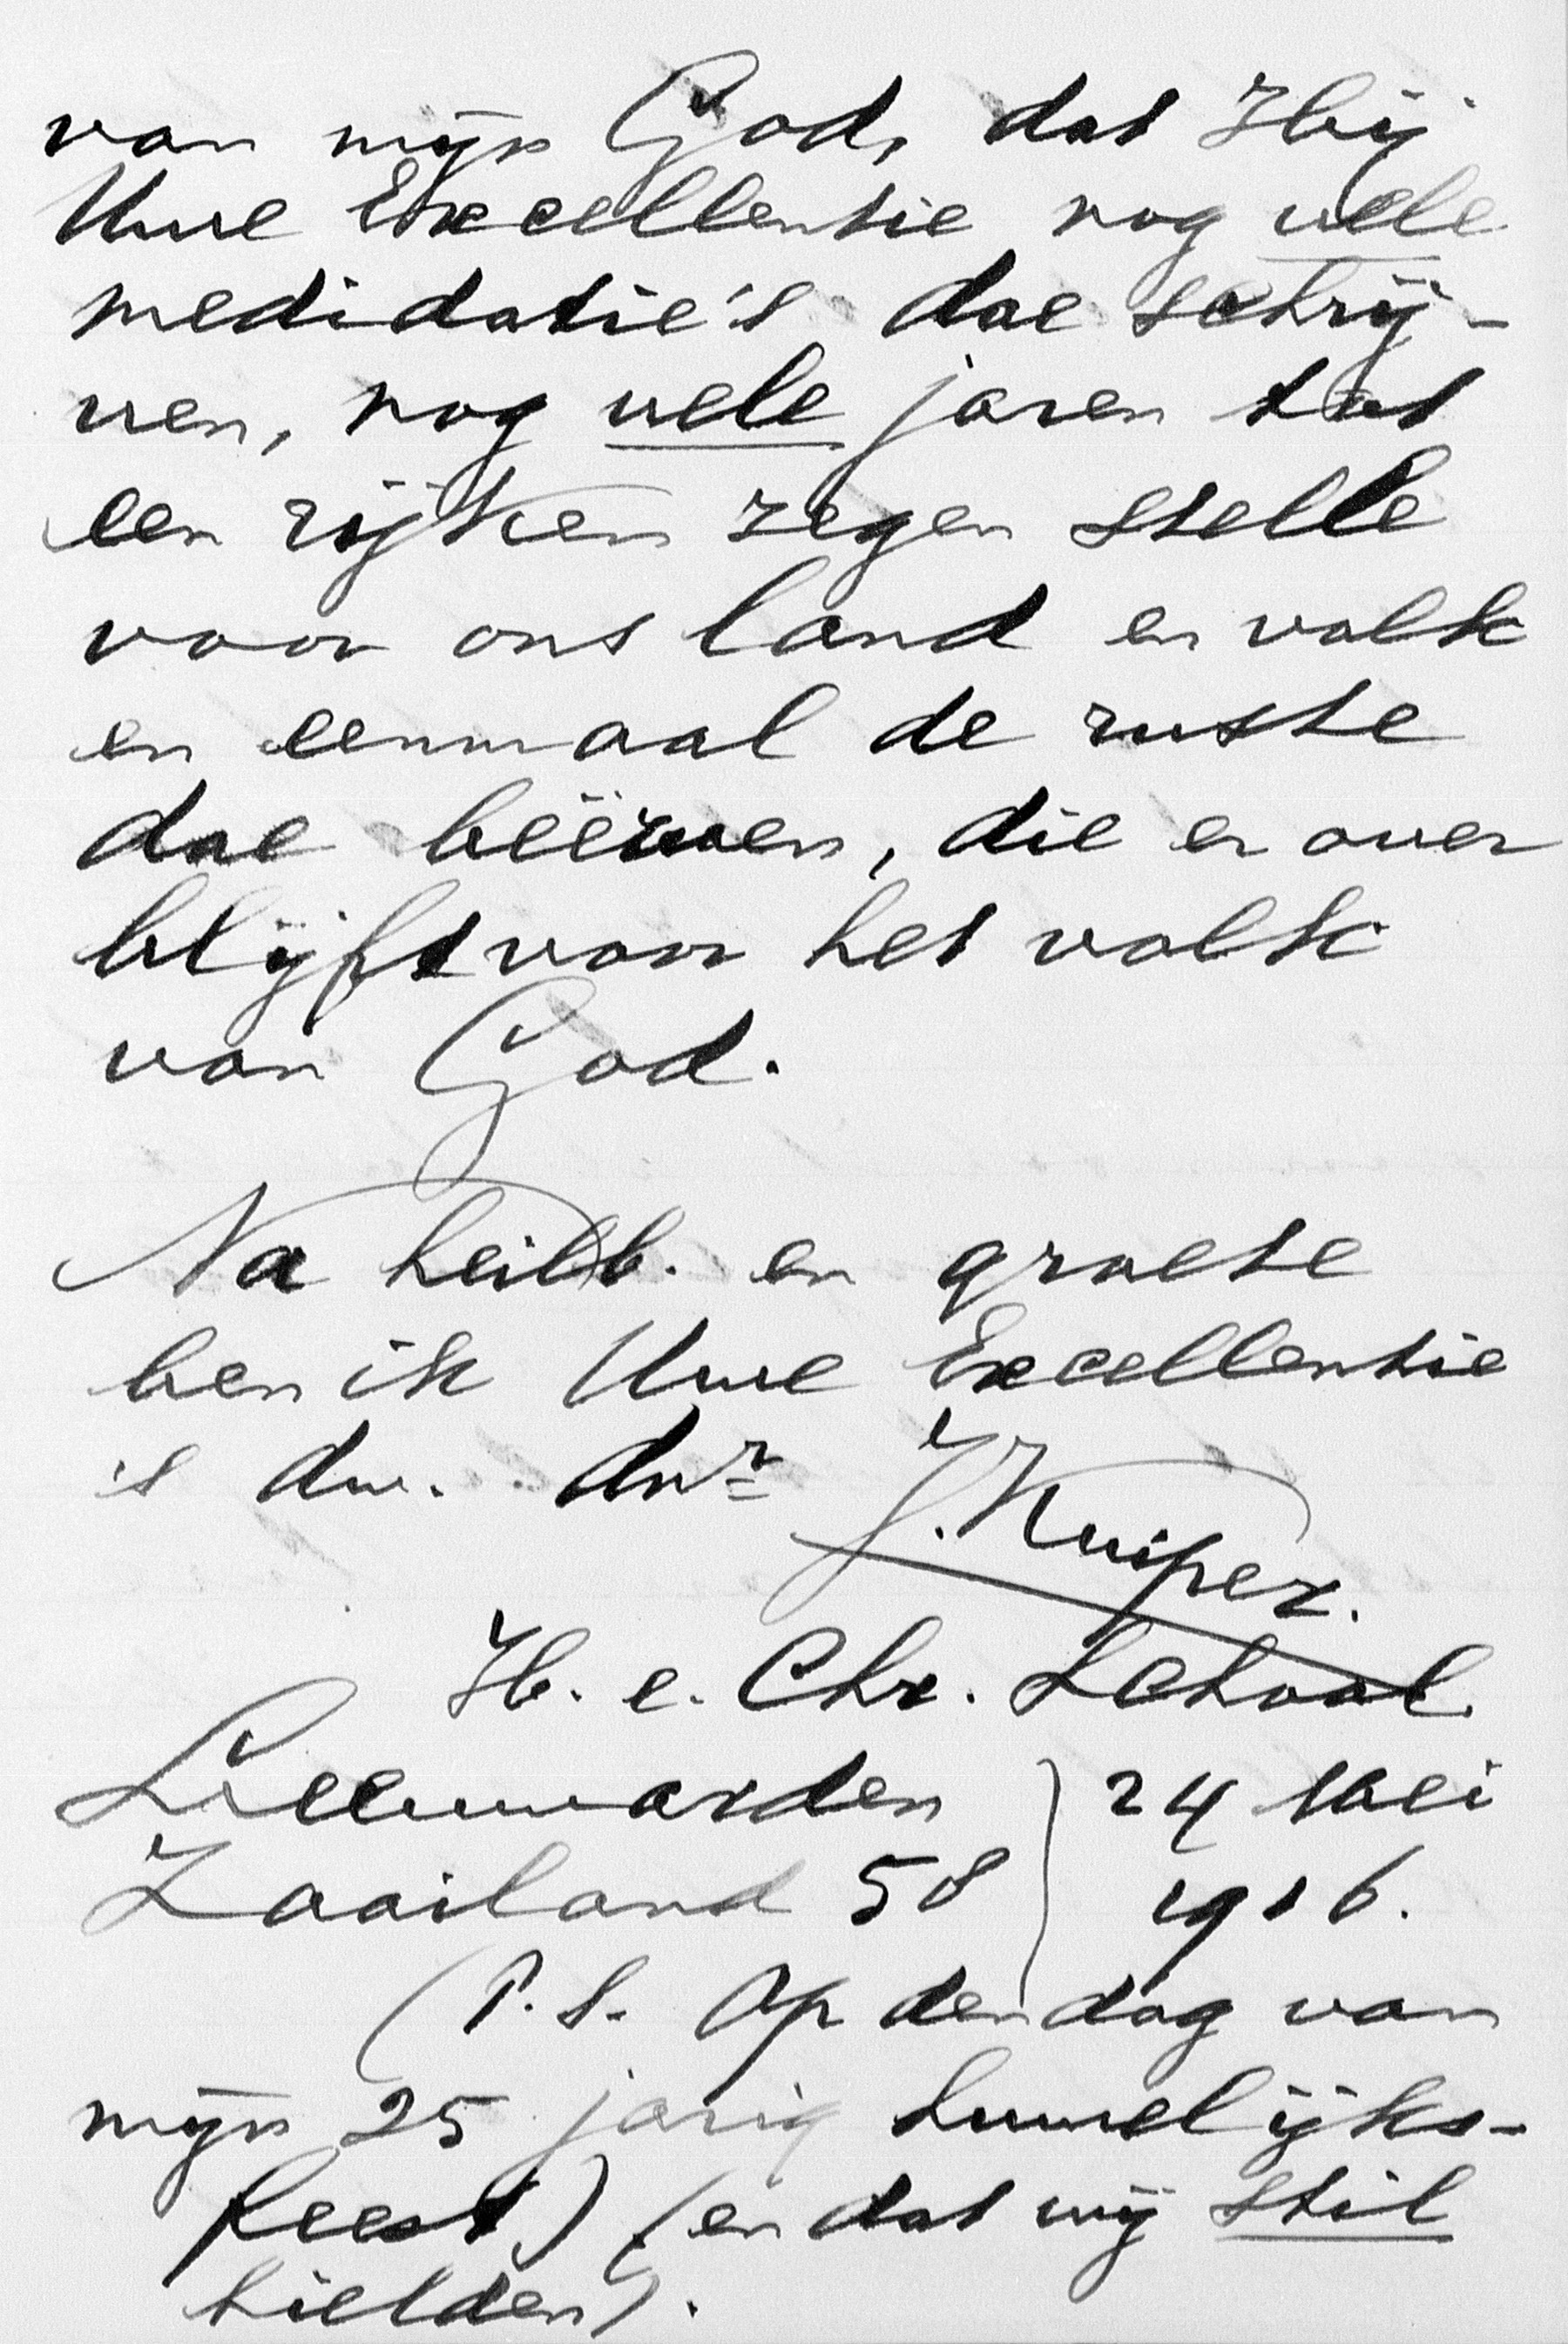 van mijn God, dat Hij
Uwe Excellentie nog vele
medidatie's doe schrij-
ven, nog vele jaren tot
een rijken zegen stelle
voor ons land en volk
en eenmaal de ruste
doe beërven, die er over
blijft voor het volk
van God.
Na heilb. en groete
ben ik Uwe Excellentie
's dw. dnr
J. Kuiper.
H. e. Chr. School
Leeuwarden } 24 Mei
Zaailand 58 } 1916.
(P.S. Op den dag van
mijn 25 jarig huwelijks-
feest) (en dat wij stil
hielden).